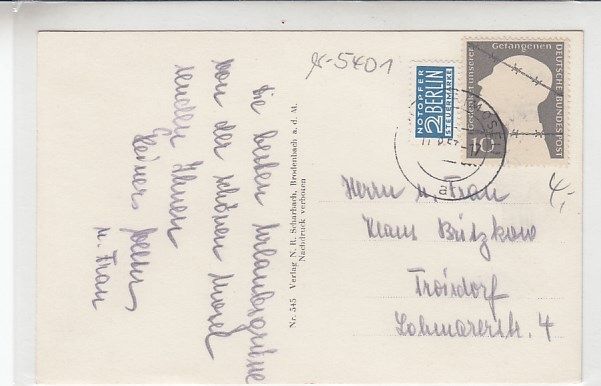 die besten Urlaubsgrüße
von der schönen Mosel
senden Ihnen
Heiner
u. Frau
Nr. 545 Verlag N. R. Scharbach, Brodenbach a. d. M.
Nachdruck verboten
5401
NOTOPFER
2 BERLIN
STEUERMARKE
Gedenket unserer
Gefangenen
DEUTSCHE BUNDESPOST
10
Herrn u. Frau
Klaus Butzkow
Troisdorf
Lohmarerstr. 4
4,-